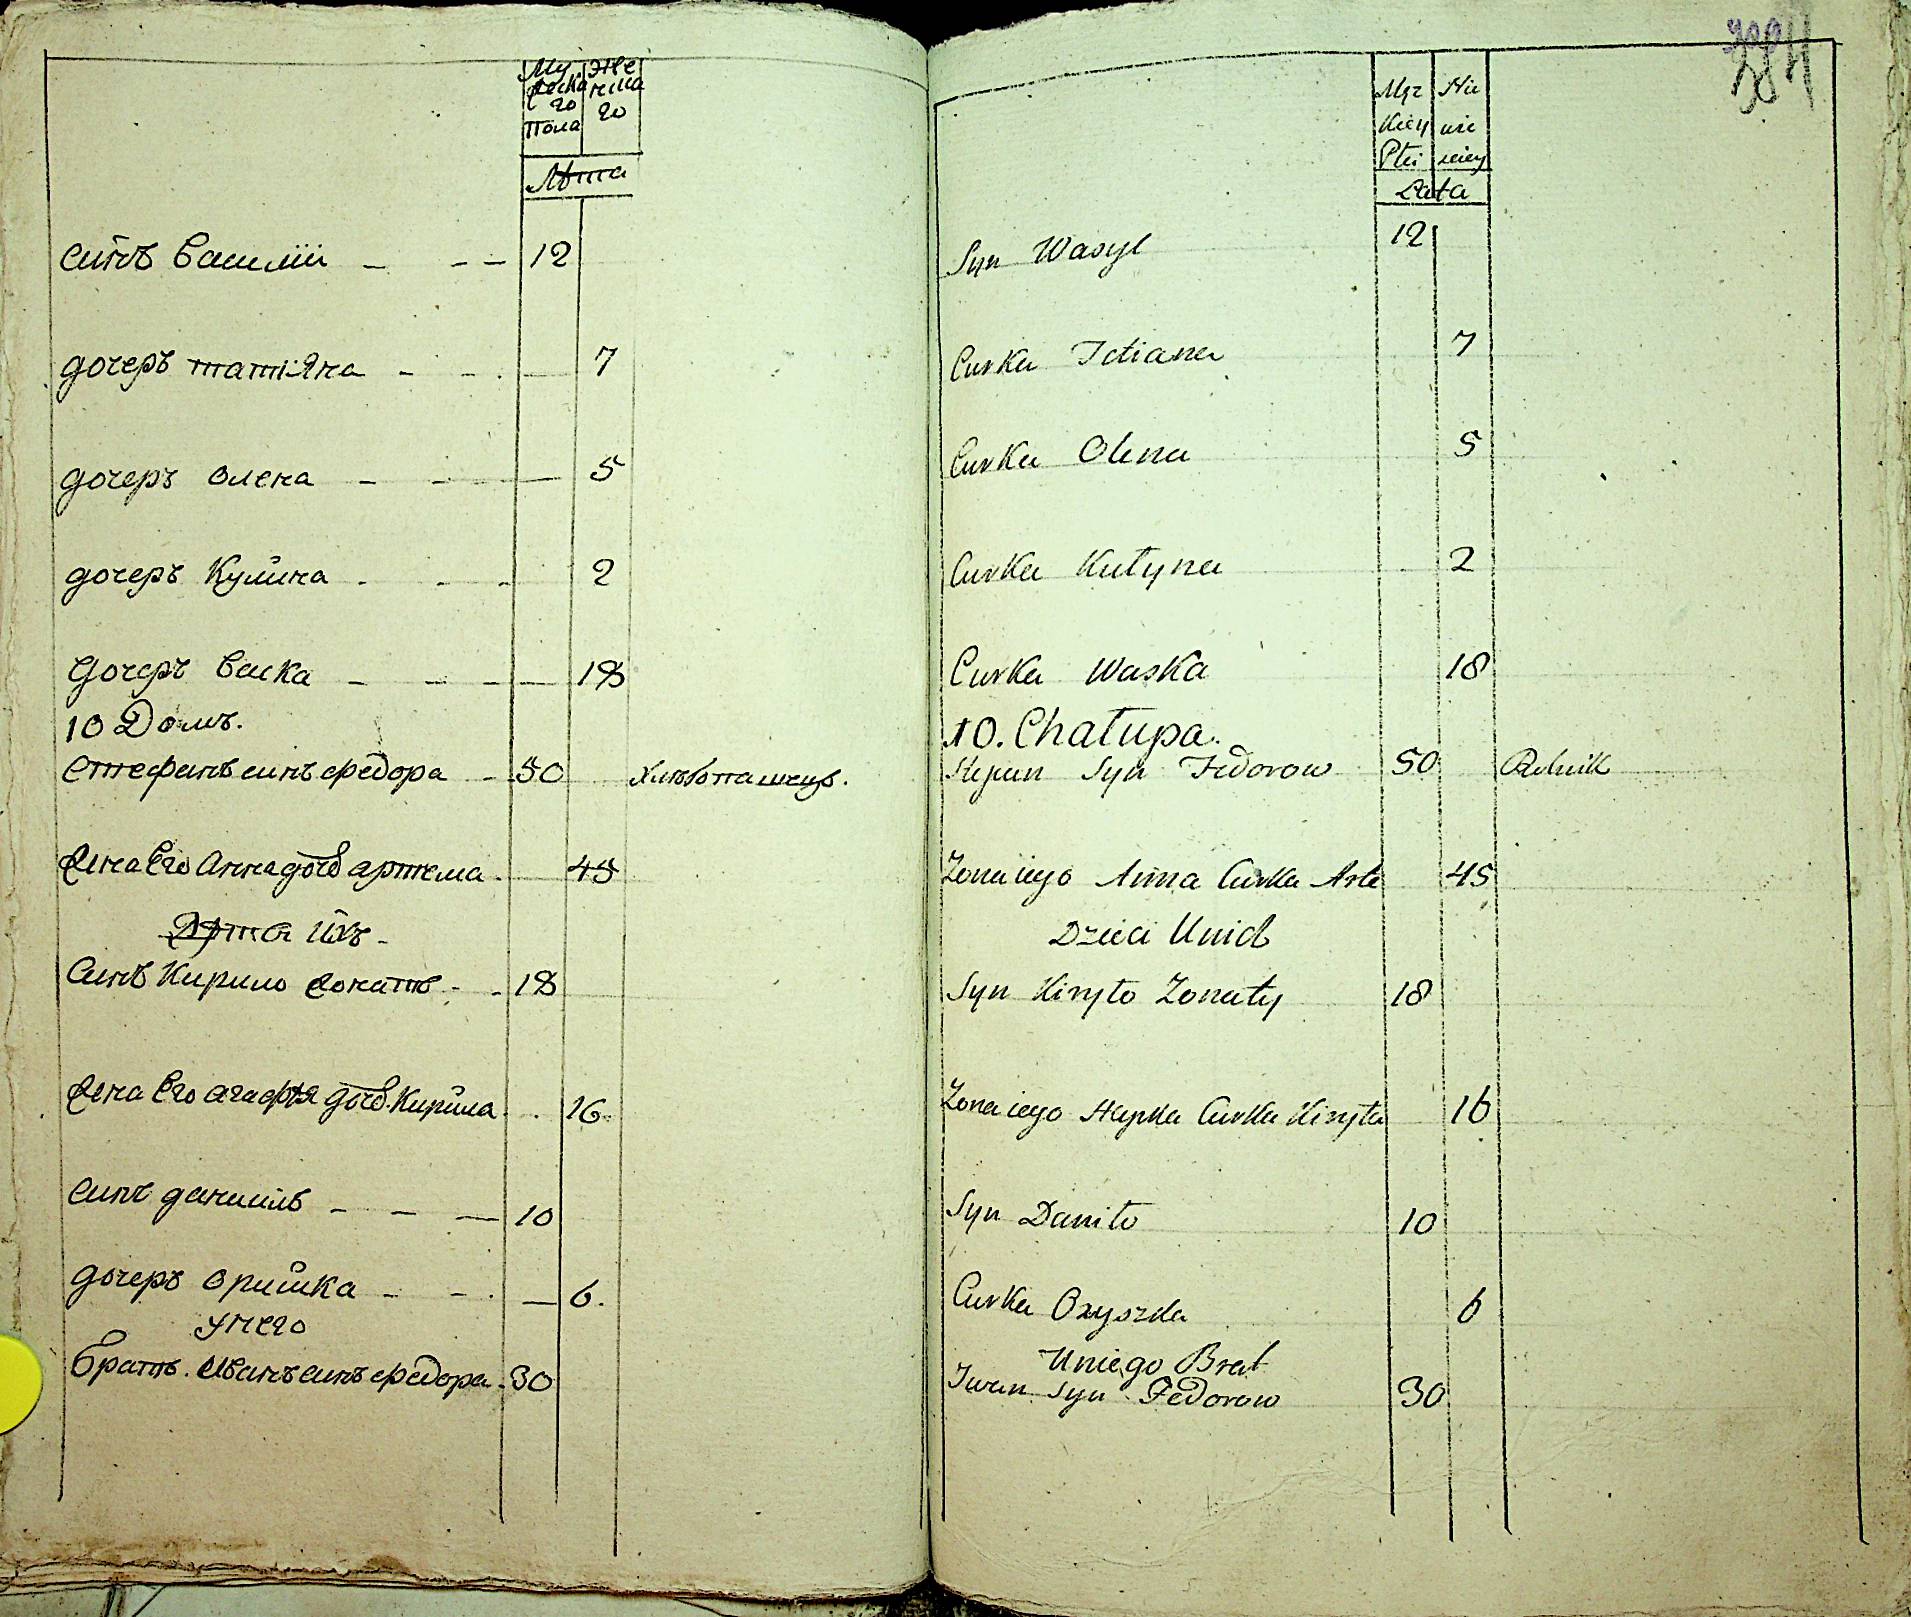 Му Же
ска нска
го го
Пола
Лѣта
синъ василій - - - 12
дочеръ татіяна - - - 7
дочеръ олена - - - 5
дочеръ Кулина - - - 2
дочеръ васка - - - 18
10 Домъ.
стефанъ синъ федора - 50 хлѣбопашецъ.
жена его анна дочь артема - 45
Дѣти ихъ -
синъ Кирило жонатъ - - 18
жена его агафія дочь Кирила - - 16
синъ данииль - - - 10
дочеръ оришка - - - 6.
у него
братъ. иванъ синъ федора - 30
Męz Nie
kiey wie
Płci sciey
Lata
Syn Wasyl 12
Curka Tatiana 7
Curka Olena 5
Curka Kulyna 2
Curka Waska 18
10. Chałupa.
Stepan Syn Fedorow 50 Rolnik
Zona iego Anna Curka Arte 45
Dzieci Unich
Syn Kiryło Zonaty 18
Zona iego Hapka Curka Kiryła 16
Syn Daniło 10
Curka Oryszka 6
Uniego Brat
Iwan Syn Fedorow 30